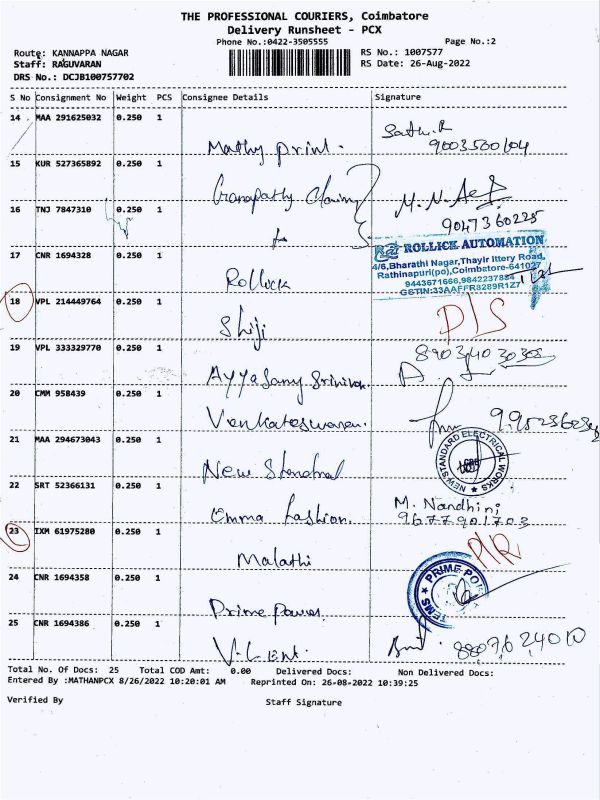 THE PROFESSIONAL COURIERS, Coimbatore
Delivery Runsheet - PCX
Phone No.:0422-3505555 Page No.:2
Route: KANNAPPA NAGAR RS No.: 1007577
Staff: RAGUVARAN RS Date: 26-Aug-2022
DRS No.: DCJB100757702
S No Consignment No Weight PCS Consignee Details Signature
14 MAA 291625032 0.250 1
Mathy print.
9003500104
15 KUR 527365892 0.250 1
Ganapathy
M.N.
16 TNJ 7847310 0.250 1
9047360225
17 CNR 1694328 0.250 1
Rollick
ROLLICK AUTOMATION
4/6,Bharathi Nagar,Thayir Ittery Road,
Rathinapuri(po),Coimbatore-641027
9443671666,9842237884
GSTIN:33AAFFR8289R1Z7
18 VPL 214449764 0.250 1
Shiji
D/S
19 VPL 333329770 0.250 1
8903403030
Ayyasamy Srinivasan.
20 CMM 958439 0.250 1
Venkateswaran.
21 MAA 294673043 0.250 1
New Standard
NEW STANDARD ELECTRICAL WORKS
CBE
22 SRT 52366131 0.250 1
Emma Fashion.
M. Nandhini
9677901703
23 IXM 61975280 0.250 1
Malathi
24 CNR 1694358 0.250 1
Prime Power
PRIME
25 CNR 1694386 0.250 1
V.L Ent.
8807624010
Total No. Of Docs: 25 Total COD Amt: 0.00 Delivered Docs: Non Delivered Docs:
Entered By :MATHANPCX 8/26/2022 10:20:01 AM Reprinted On: 26-08-2022 10:39:25
Verified By Staff Signature